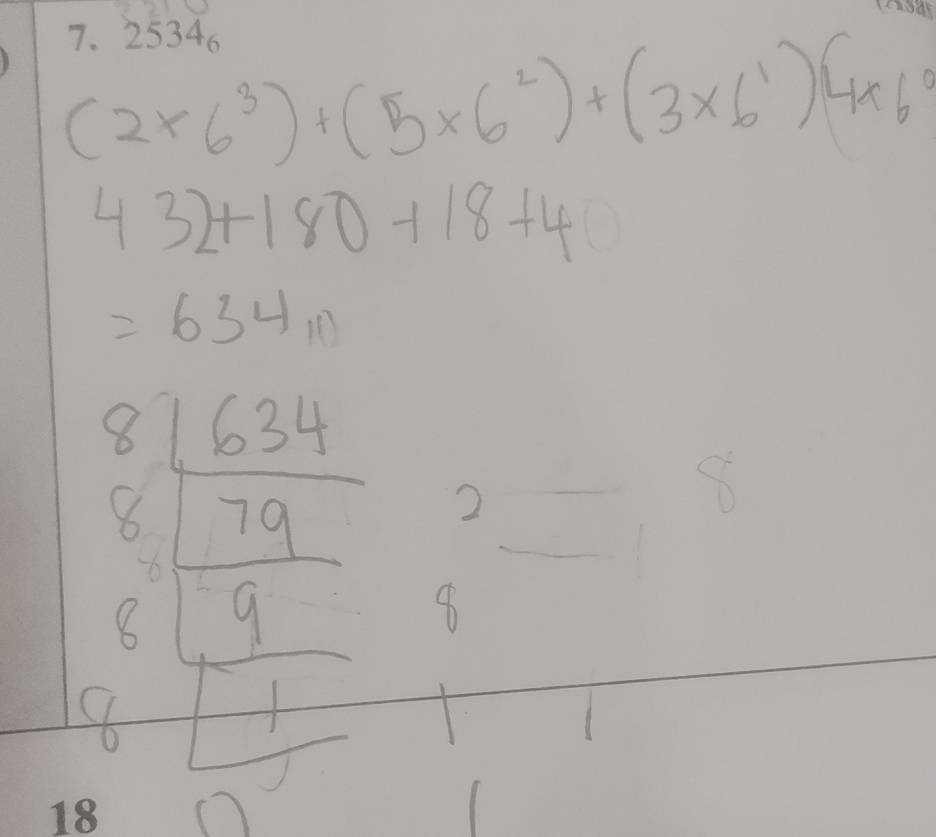 7. 2534₆
(2 × 6³) + (5 × 6²) + (3 × 6¹) (4 × 6⁰
432 + 180 + 18 + 4
= 634₁₀
8 634
8 79 2
8 9 8
8 1 1 1
0 1
18